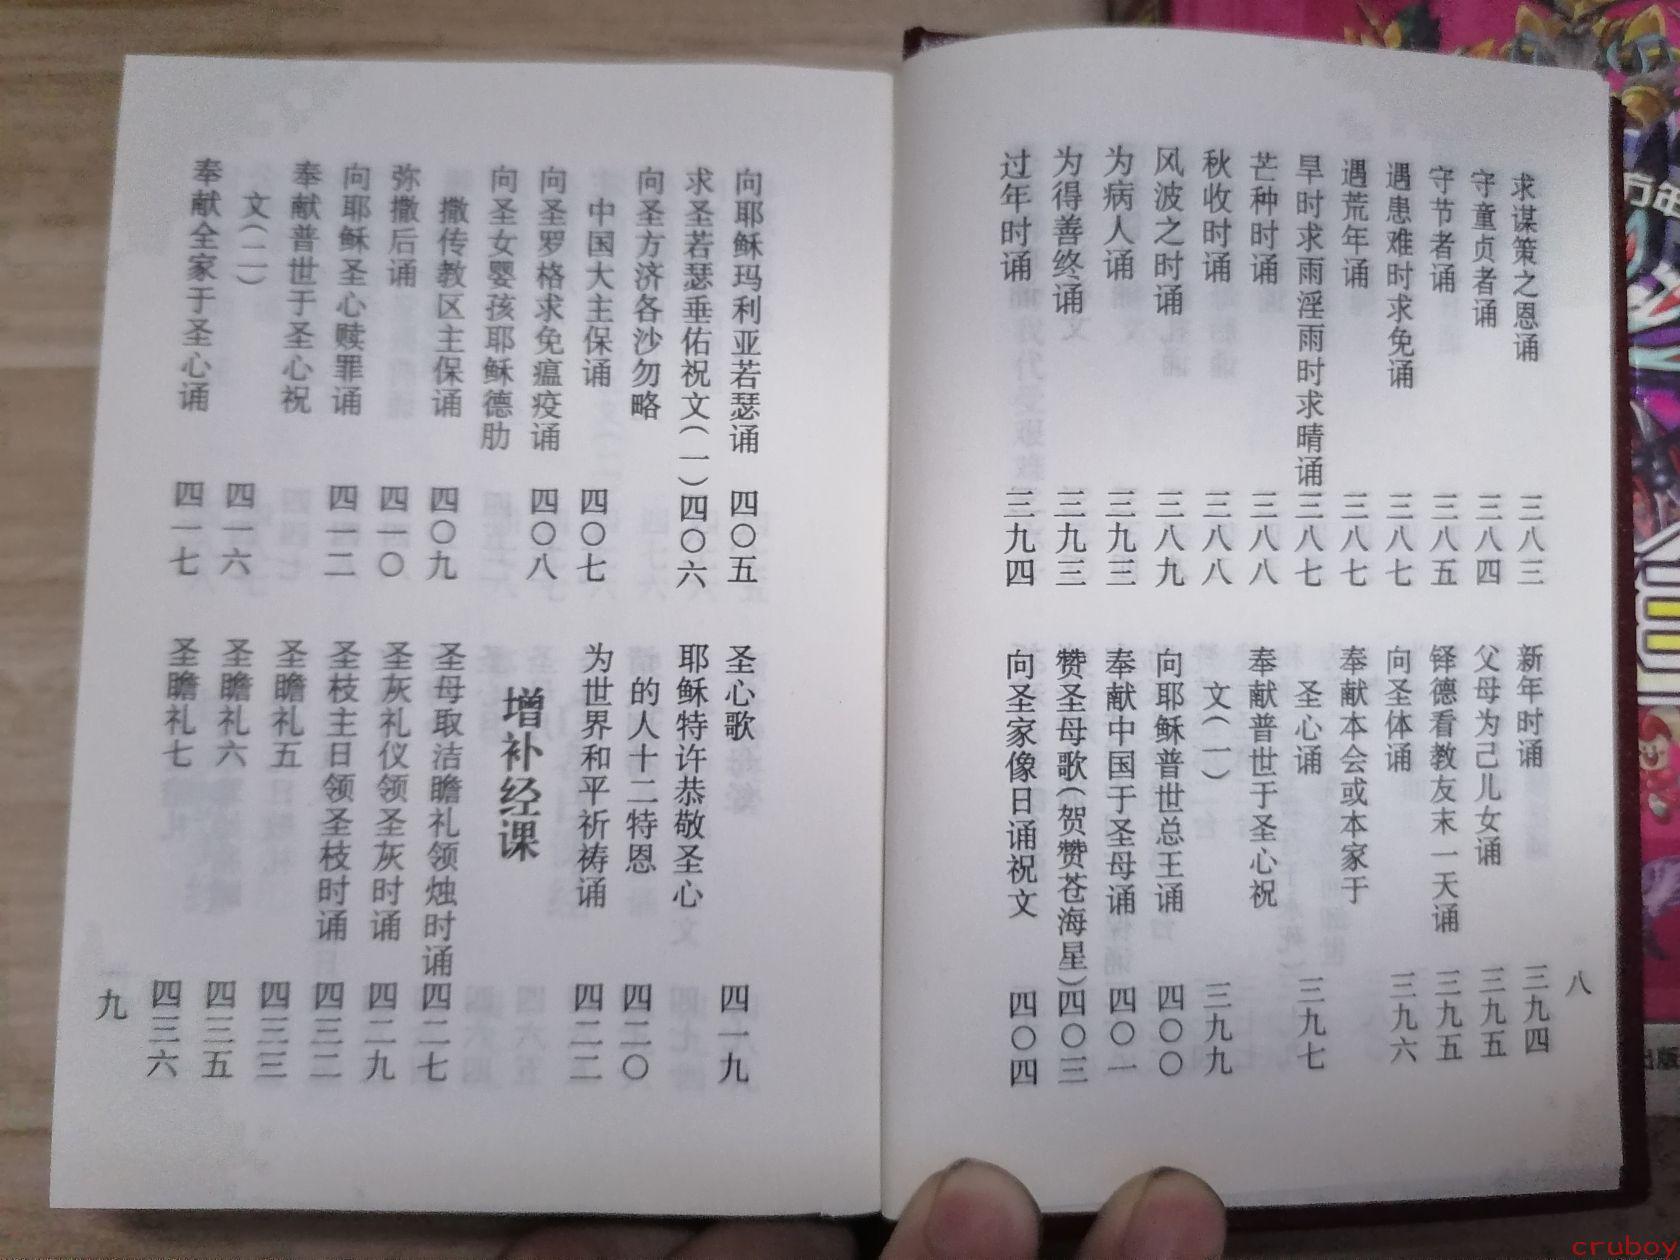 求谋策之恩诵 三八三
守童贞者诵 三八四
守节者诵 三八五
遇患难时求免诵 三八七
遇荒年诵 三八七
旱时求雨淫雨时求晴诵 三八七
芒种时诵 三八八
秋收时诵 三八八
风波之时诵 三八九
为病人诵 三九三
为得善终诵 三九三
过年时诵 三九四
新年时诵 三九四
父母为己儿女诵 三九五
铎德看教友末一天诵 三九五
向圣体诵 三九六
奉献本会或本家于
圣心诵 三九七
奉献普世于圣心祝
文(一) 三九九
向耶稣普世总王诵 四〇〇
奉献中国于圣母诵 四〇一
赞圣母歌(贺赞苍海星) 四〇三
向圣家像日诵祝文 四〇四
八
向耶稣玛利亚若瑟诵 四〇五
求圣若瑟垂佑祝文(一) 四〇六
向圣方济各沙勿略
中国大主保诵 四〇七
向圣罗格求免瘟疫诵 四〇八
向圣女婴孩耶稣德肋
撒传教区主保诵 四〇九
弥撒后诵 四一〇
向耶稣圣心赎罪诵 四一二
奉献普世于圣心祝
文(二) 四一六
奉献全家于圣心诵 四一七
圣心歌 四一九
耶稣特许恭敬圣心
的人十二特恩 四二〇
为世界和平祈祷诵 四二二
增补经课
圣母取洁瞻礼领烛时诵 四二七
圣灰礼仪领圣灰时诵 四二九
圣枝主日领圣枝时诵 四三二
圣瞻礼五 四三三
圣瞻礼六 四三五
圣瞻礼七 四三六
九
方年
出版
cruboy